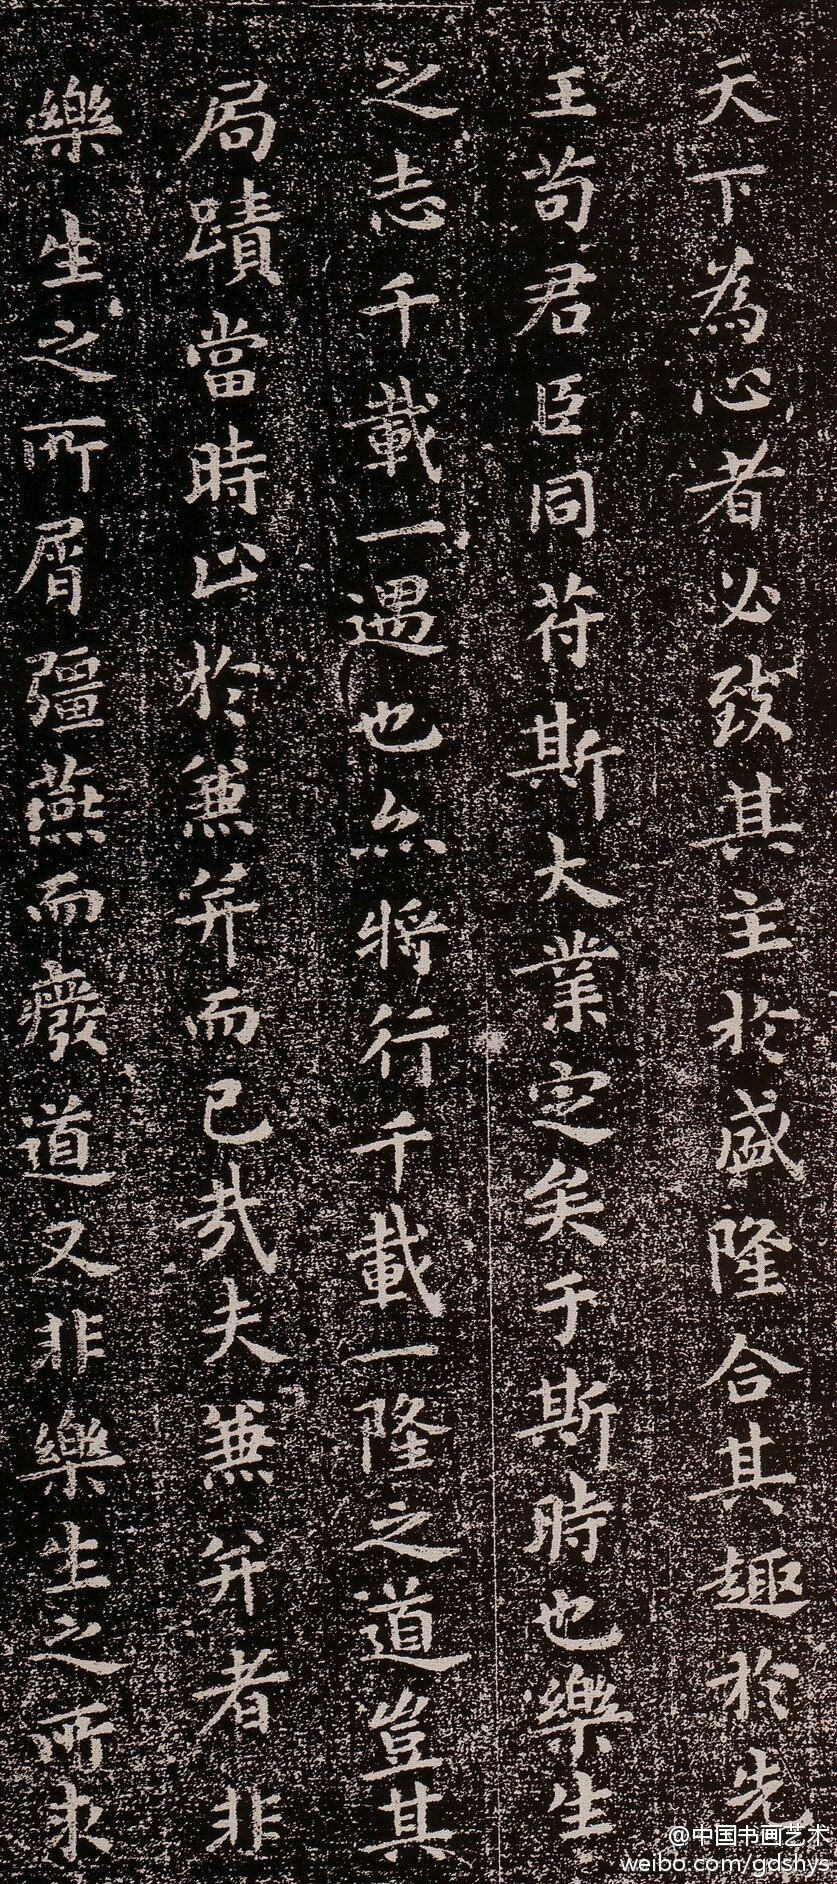 天下為心者必致其主於盛隆合其趣於先
王苟君臣同符斯大業定矣于斯時也樂生
之志千載一遇也亦將行千載一隆之道豈其
局蹟當時止於兼并而已哉夫兼并者非
樂生之所屑彊燕而廢道又非樂生之所求
@中国书画艺术
weibo.com/gdshys